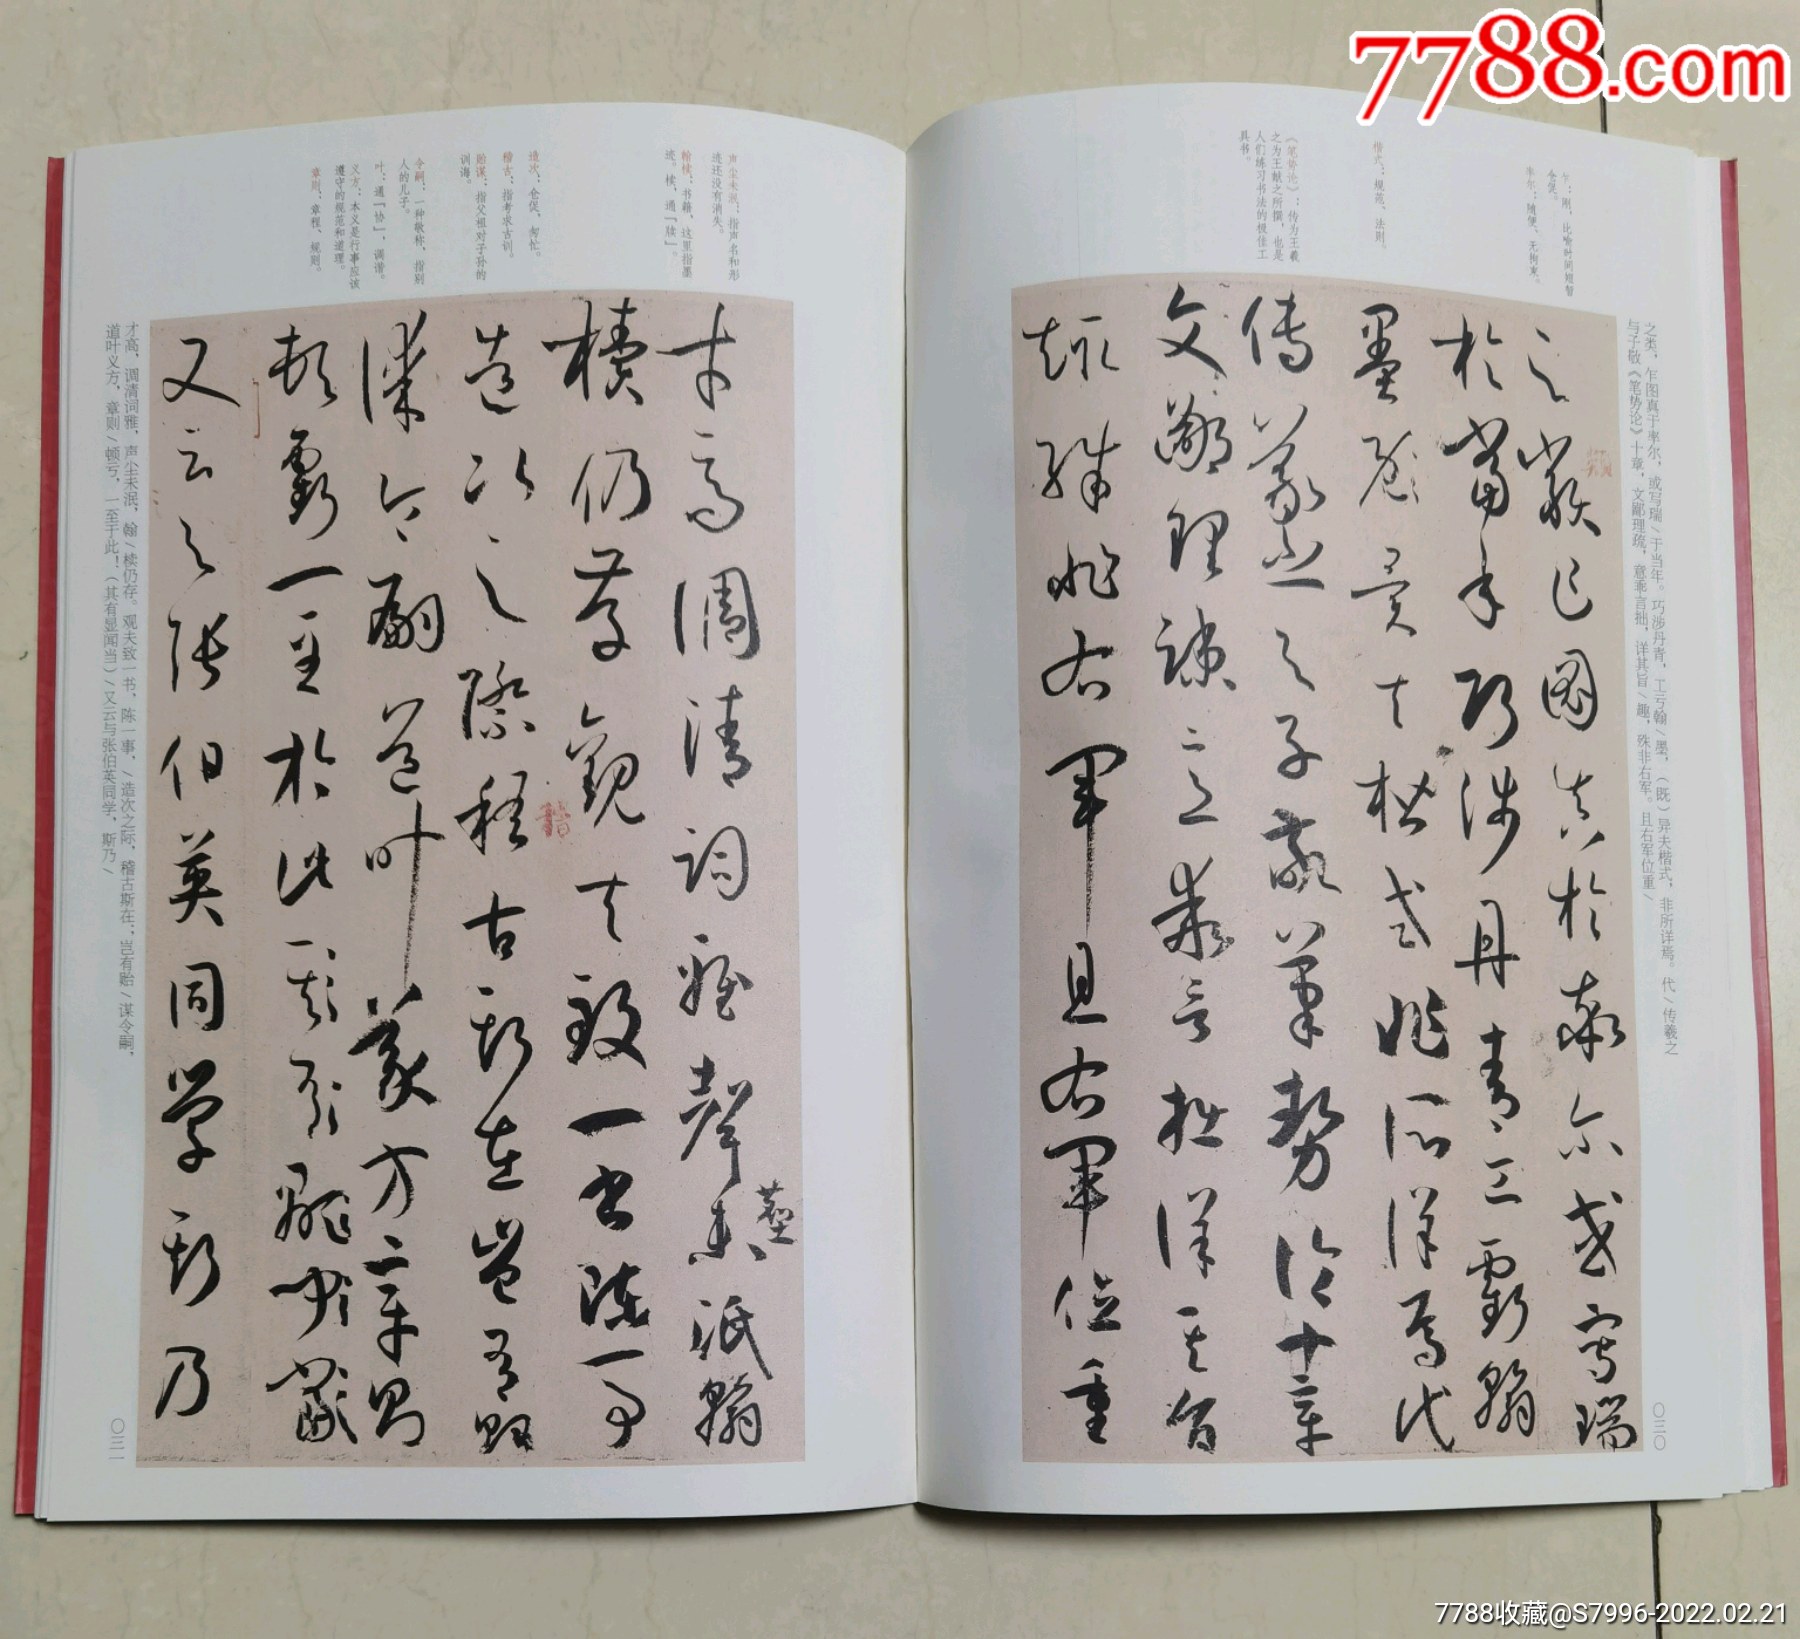 7788.com
乍：刚，比喻时间短暂
仓促。
率尔：随便、无拘束。
楷式：规范、法则。
《笔势论》：传为王羲
之为王献之所撰，也是
人们练习书法的极佳工
具书。
之类，乍图真于率尔，或写瑞/于当年。巧涉丹青，工亏翰/墨，（既）异夫楷式，非所详焉。代/传羲之
与子敬《笔势论》十章，文鄙理疏，意乖言拙，详其旨/趣，殊非右军。且右军位重/
之類乍圖真於率尔或寫瑞
於當年巧涉丹青工虧翰
墨異夫楷式非所詳焉代
傳羲之与子敬筆勢論十章
文鄙理踈意乖言拙詳其旨
趣殊非右軍且右軍位重
〇三〇
声尘未泯：指声名和形
迹还没有消失。
翰椟：书籍，这里指墨
迹。椟，通「牍」。
造次：仓促、匆忙。
稽古：指考求古训。
贻谋：指父祖对子孙的
训诲。
令嗣：一种敬称，指别
人的儿子。
叶：通「协」，调谐。
义方：本义是行事应该
遵守的规范和道理。
章则：章程、规则。
才高调清詞雅聲塵未泯翰
櫝仍存觀夫致一書陳一事
造次之際稽古斯在豈有貽
謀令嗣道叶義方章則
頓虧一至於此
又云与張伯英同学斯乃
才高，调清词雅，声尘未泯，翰/椟仍存。观夫致一书，陈一事，/造次之际，稽古斯在；岂有贻/谋令嗣，
道叶义方，章则/顿亏，一至于此！（其有显闻当）/又云与张伯英同学，斯乃/
〇三一
7788收藏@S7996-2022.02.21